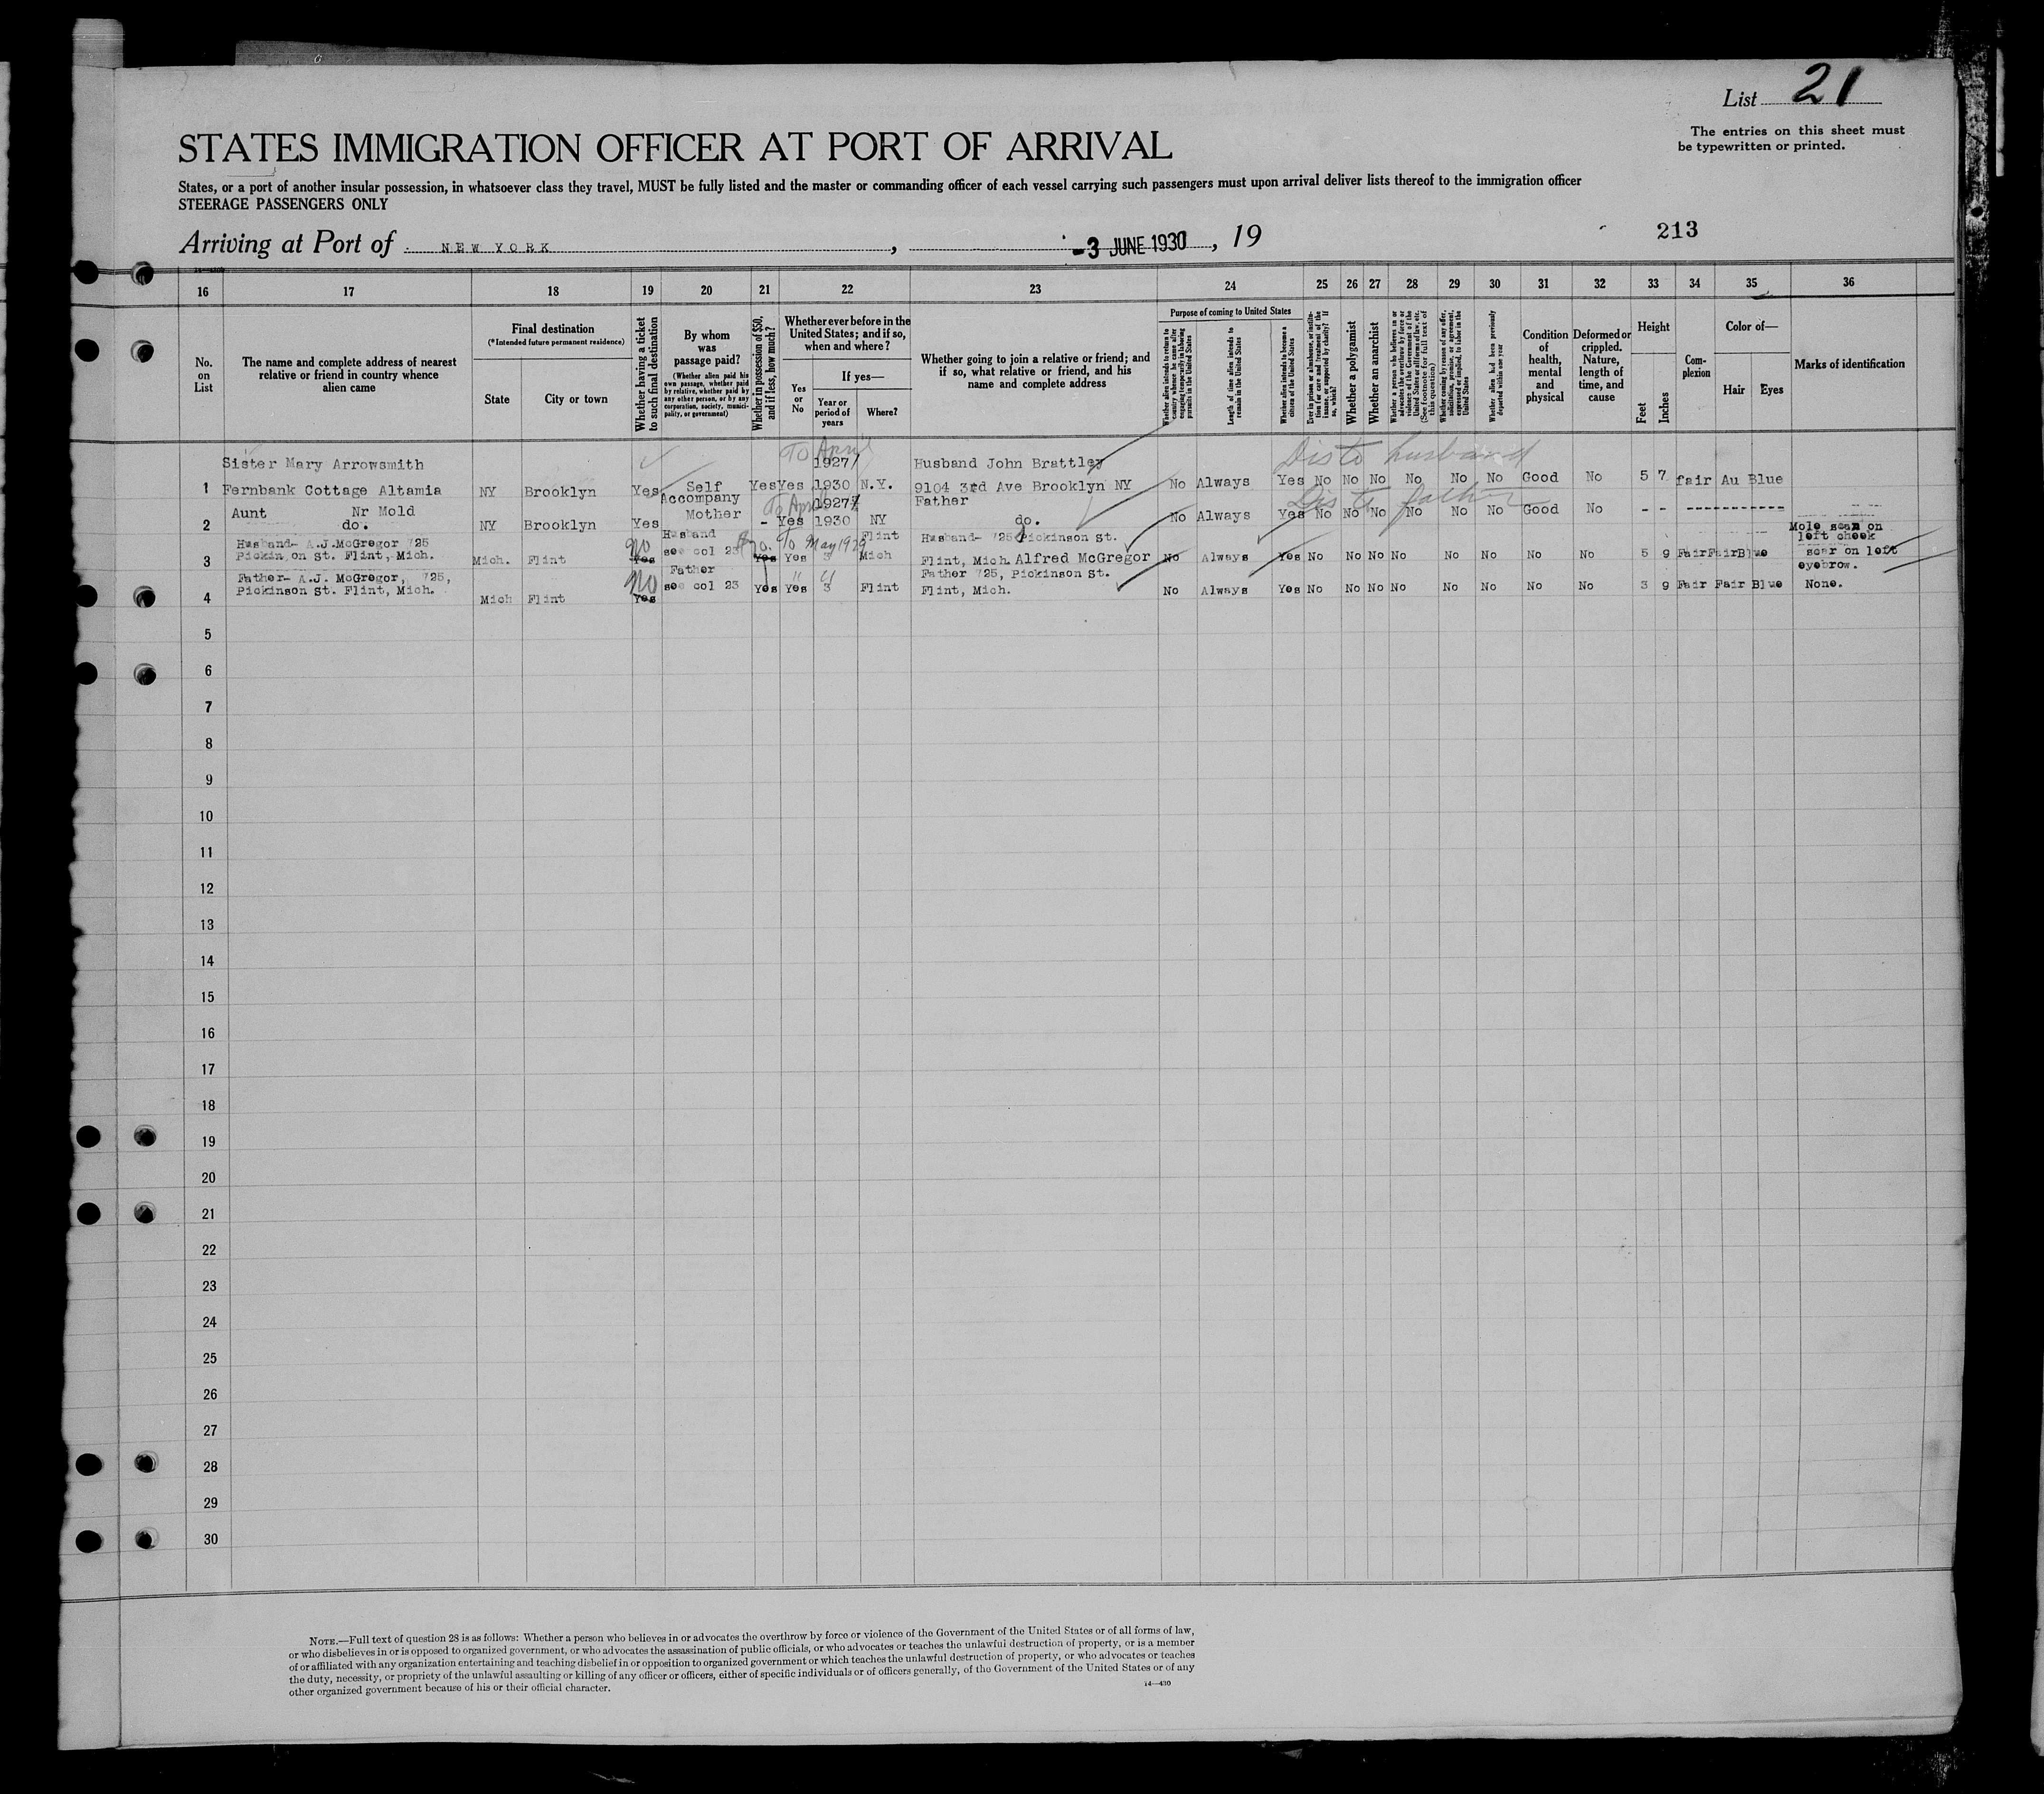 List 21
The entries on this sheet must
be typewritten or printed.
STATES IMMIGRATION OFFICER AT PORT OF ARRIVAL
States, or a port of another insular possession, in whatsoever class they travel, MUST be fully listed and the master or commanding officer of each vessel carrying such passengers must upon arrival deliver lists thereof to the immigration officer
STEERAGE PASSENGERS ONLY
Arriving at Port of NEW YORK, -3 JUNE 1930, 19
213
16 17 18 19 20 21 22 23 24 25 26 27 28 29 30 31 32 33 34 35 36
No. on List
The name and complete address of nearest
relative or friend in country whence
alien came
Final destination
(*Intended future permanent residence)
State
City or town
Whether having a ticket
to such final destination
By whom
was
passage paid?
(Whether alien paid his
own passage, whether paid
by relative, whether paid by
any other person, or by any
corporation, society, munici-
pality, or government)
Whether in possession of $50,
and if less, how much?
Whether ever before in the
United States; and if so,
when and where?
Yes
or
No
If yes—
Year or
period of
years
Where?
Whether going to join a relative or friend; and
if so, what relative or friend, and his
name and complete address
Purpose of coming to United States
Whether alien intends to return to
country whence he came after
engaging temporarily in laboring
pursuits in the United States
Length of time alien intends to
remain in the United States
Whether alien intends to become a
citizen of the United States
Ever in prison or almshouse, or institu-
tion for care and treatment of the
insane, or supported by charity? If
so, which?
Whether a polygamist
Whether an anarchist
Whether a person who believes in or
advocates the overthrow by force or
violence of the Government of the
United States or all forms of law, etc.
(See footnote for full text of
this question)
Whether coming by reason of any offer,
solicitation, promise, or agreement,
expressed or implied, to labor in the
United States
Whether alien had been previously
deported within one year
Condition
of
health,
mental
and
physical
Deformed or
crippled.
Nature,
length of
time, and
cause
Height
Feet
Inches
Com-
plexion
Color of—
Hair
Eyes
Marks of identification
To April
Dis to husband
Sister Mary Arrowsmith 1927/ Husband John Brattley
1 Fernbank Cottage Altamia NY Brooklyn Yes Self Yes Yes 1930 N.Y. 9104 3rd Ave Brooklyn NY No Always Yes No No No No No No Good No 5 7 fair Au Blue
To April
Dis to father
Aunt Nr Mold Accompany 1927/ Father
2 do. NY Brooklyn Yes Mother - Yes 1930 NY do. No Always Yes No No No No No No Good No - - -----------
Husband- A.J.McGregor 725 No Husband To May 1929 Flint Husband- 725 Pickinson St. Mole scan on
left cheek
3 Pickin on St. Flint, Mich. Mich. Flint Yes see col 23 Yes Yes 3 Mich Flint, Mich. Alfred McGregor No Always Yes No No No No No No No No 5 9 Fair Fair Blue scar on left
eyebrow.
Father- A.J. McGregor, 725, No Father " " Father 725, Pickinson St.
4 Pickinson St. Flint, Mich. Mich Flint Yes see col 23 Yes Yes 3 Flint Flint, Mich. No Always Yes No No No No No No No No 3 9 Fair Fair Blue None.
5
6
7
8
9
10
11
12
13
14
15
16
17
18
19
20
21
22
23
24
25
26
27
28
29
30
NOTE.—Full text of question 28 is as follows: Whether a person who believes in or advocates the overthrow by force or violence of the Government of the United States or of all forms of law,
or who disbelieves in or is opposed to organized government, or who advocates the assassination of public officials, or who advocates or teaches the unlawful destruction of property, or is a member
of or affiliated with any organization entertaining and teaching disbelief in or opposition to organized government or which teaches the unlawful destruction of property, or who advocates or teaches
the duty, necessity, or propriety of the unlawful assaulting or killing of any officer or officers, either of specific individuals or of officers generally, of the Government of the United States or of any
other organized government because of his or their official character.
14—430